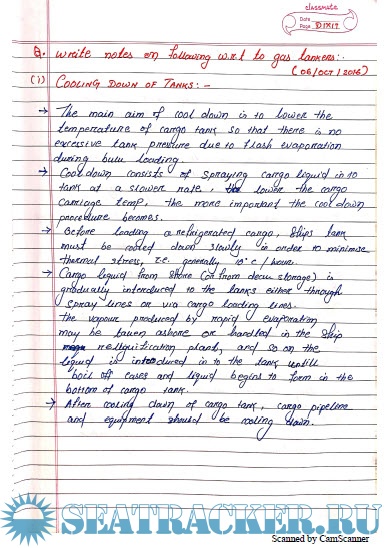 classmate
Date
Page DIXIT
Q. Write notes on following w.r.t to gas tankers:-
(06/OCT/2016)
(i) COOLING DOWN OF TANKS:-
→ The main aim of cool down is to lower the
temperature of cargo tank so that there is no
excessive tank pressure due to flash evaporation
during bulk loading.
→ Cool down consists of spraying cargo liquid into
tank at a slower rate, lower the cargo
carriage temp, the more important the cool down
procedure becomes.
→ Before loading a refrigerated cargo, ships tank
must be cooled down slowly in order to minimise
thermal stress, i.e. generally 10°c/hour.
→ Cargo liquid from shore (or from deck storage) is
gradually introduced to the tanks either through
spray lines or via cargo loading lines.
the vapour produced by rapid evaporation
may be taken ashore or handled in the ship
reliquification plant, and so on the
liquid is introduced in to the tank untill
boil off cases and liquid begins to form in the
bottom of cargo tank.
→ After cooling down of cargo tank, cargo pipeline
and equipment should be cooling down.
SEATRACKER.RU
Scanned by CamScanner